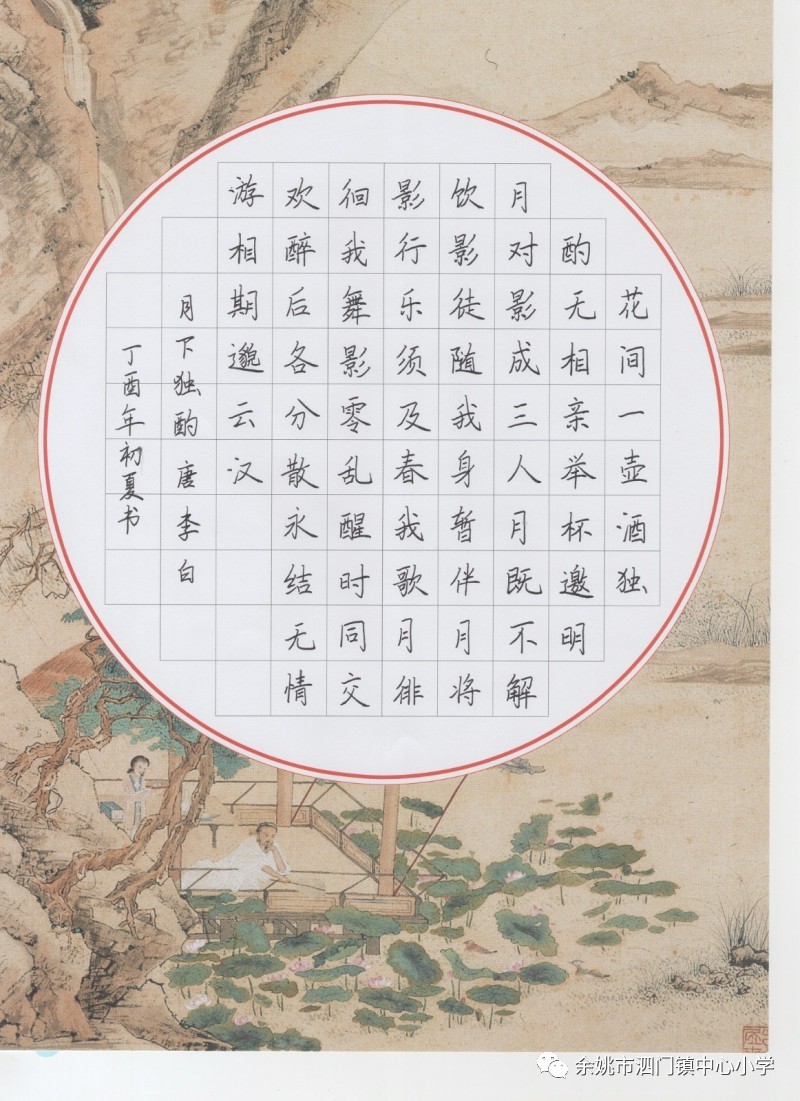 花间一壶酒独
酌无相亲举杯邀明
月对影成三人月既不解
饮影徒随我身暂伴月将
影行乐须及春我歌月徘
徊我舞影零乱醒时同交
欢醉后各分散永结无情
游相期邈云汉
月下独酌 唐 李白
丁酉年初夏书
余姚市泗门镇中心小学